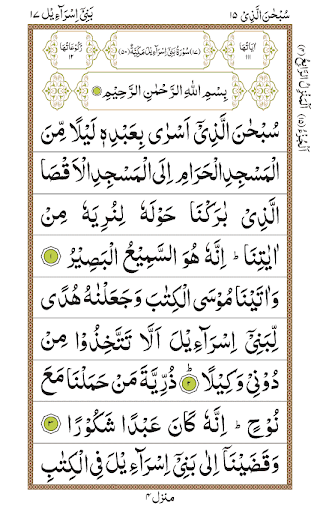 سُبْحٰنَ الَّذِیْۤ ۱۵
بَنِیْۤ اِسْرَآءِیْل ۱۷
اٰیَاتُهَا ۱۱۱
(۱۷) سُوْرَةُ بَنِیْۤ اِسْرَآءِیْلَ مَكِّیَّةٌ (۵۰)
رُكُوْعَاتُهَا ۱۲
بِسْمِ اللّٰهِ الرَّحْمٰنِ الرَّحِیْمِ
سُبْحٰنَ الَّذِیْۤ اَسْرٰی بِعَبْدِهٖ لَیْلًا مِّنَ
الْمَسْجِدِ الْحَرَامِ اِلَی الْمَسْجِدِ الْاَقْصَا
الَّذِیْ بٰرَكْنَا حَوْلَهٗ لِنُرِیَهٗ مِنْ
اٰیٰتِنَا ؕ اِنَّهٗ هُوَ السَّمِیْعُ الْبَصِیْرُ ۱
وَاٰتَیْنَا مُوْسَی الْكِتٰبَ وَجَعَلْنٰهُ هُدًی
لِّبَنِیْۤ اِسْرَآءِیْلَ اَلَّا تَتَّخِذُوْا مِنْ
دُوْنِیْ وَكِیْلًا ۲ ؕ ذُرِّیَّةَ مَنْ حَمَلْنَا مَعَ
نُوْحٍ ؕ اِنَّهٗ كَانَ عَبْدًا شَكُوْرًا ۳
وَقَضَیْنَاۤ اِلٰی بَنِیْۤ اِسْرَآءِیْلَ فِی الْكِتٰبِ
منزل ۴
(۴) اَلْمَنْزِلُ الرَّابِعُ
(۱۵) اَلْجُزْءُ